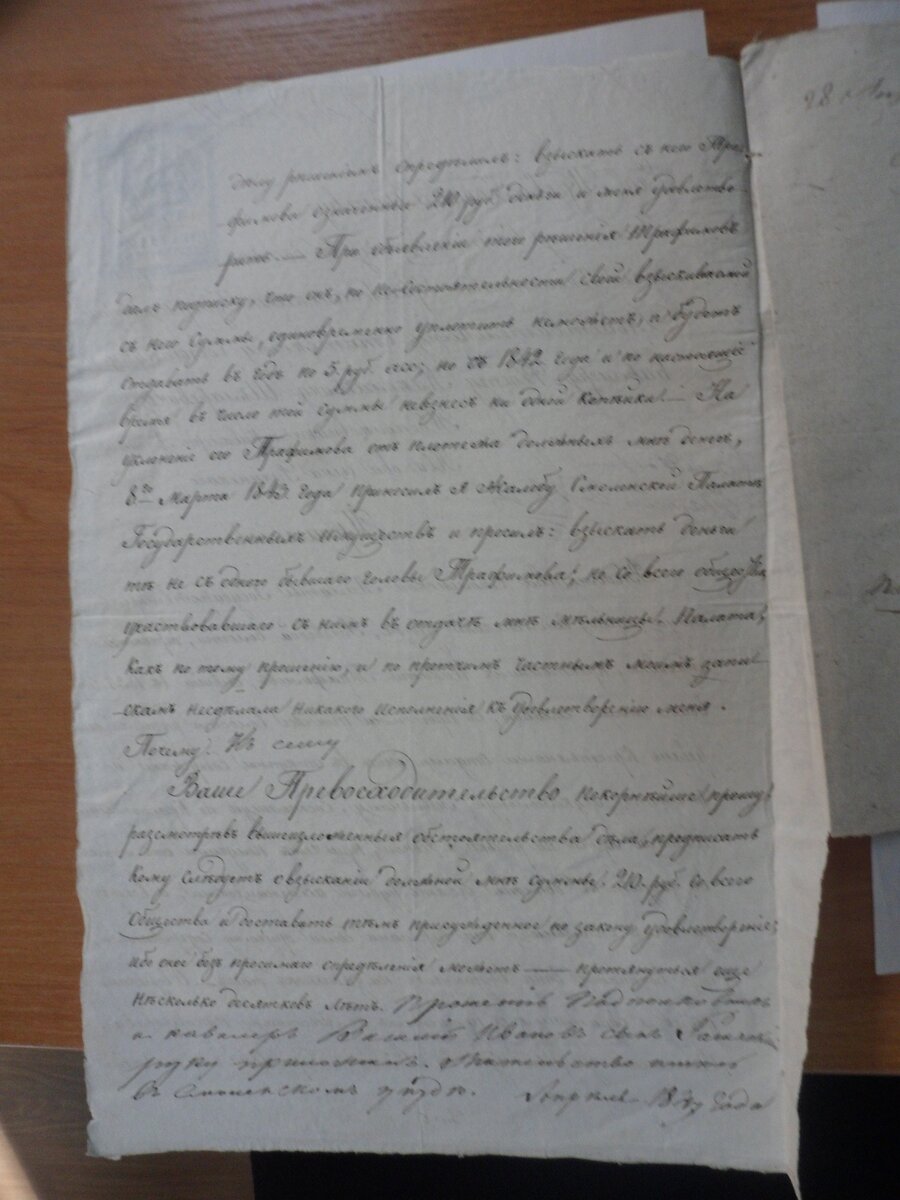 этому решеніемъ опредѣлилъ: взыскать съ него Тра-
фимова означенныя 210 руб. деньги и меня удовлетво-
рить — При объявленіи этого рѣшенія Трафимовъ
далъ подписку, что онъ, по несостоятельности своей взыскиваемой
съ него суммы, единовременно уплотить неможетъ, а будетъ
отдавать въ годъ по 5 руб. асс; но съ 1842 года и по настоящее
время въ число той суммы невзнесъ ни одной копѣйки. — На
уклоненіе его Трафимова отъ платежа должныхъ мнѣ денегъ,
8го Марта 1843 года приносилъ я жалобу Смоленской Палатѣ
Государственныхъ имуществъ и просилъ: взыскать деньги
тѣ не съ одного бывшаго головы Трафимова, но со всего общества
участвовавшаго съ нимъ въ отдачѣ мнѣ мѣльницы. Палата,
какъ по тому прошенію, и по протчимъ частнымъ моимъ запи-
скамъ несдѣлала никакого исполненія къ удовлетворенію меня.
Почему: Къ сему
Ваше Превосходительство покорнѣйше прошу
разсмотрѣвъ вышеизложенныя обстоятельства дѣла, предписать
кому слѣдуетъ о взысканіи должной мнѣ суммы 210 руб. со всего
общества и доставить тѣмъ присужденное по закону удовлетвореніе;
ибо оное безъ просимаго опредѣленія можетъ — протянуться еще
нѣсколько десятковъ лѣтъ. Прошенію Подполковникъ
и кавалеръ Василій Ивановъ сынъ
руку приложилъ. Жительство имѣю
въ Смоленскомъ уѣздѣ. Апрѣль 1847 года
28